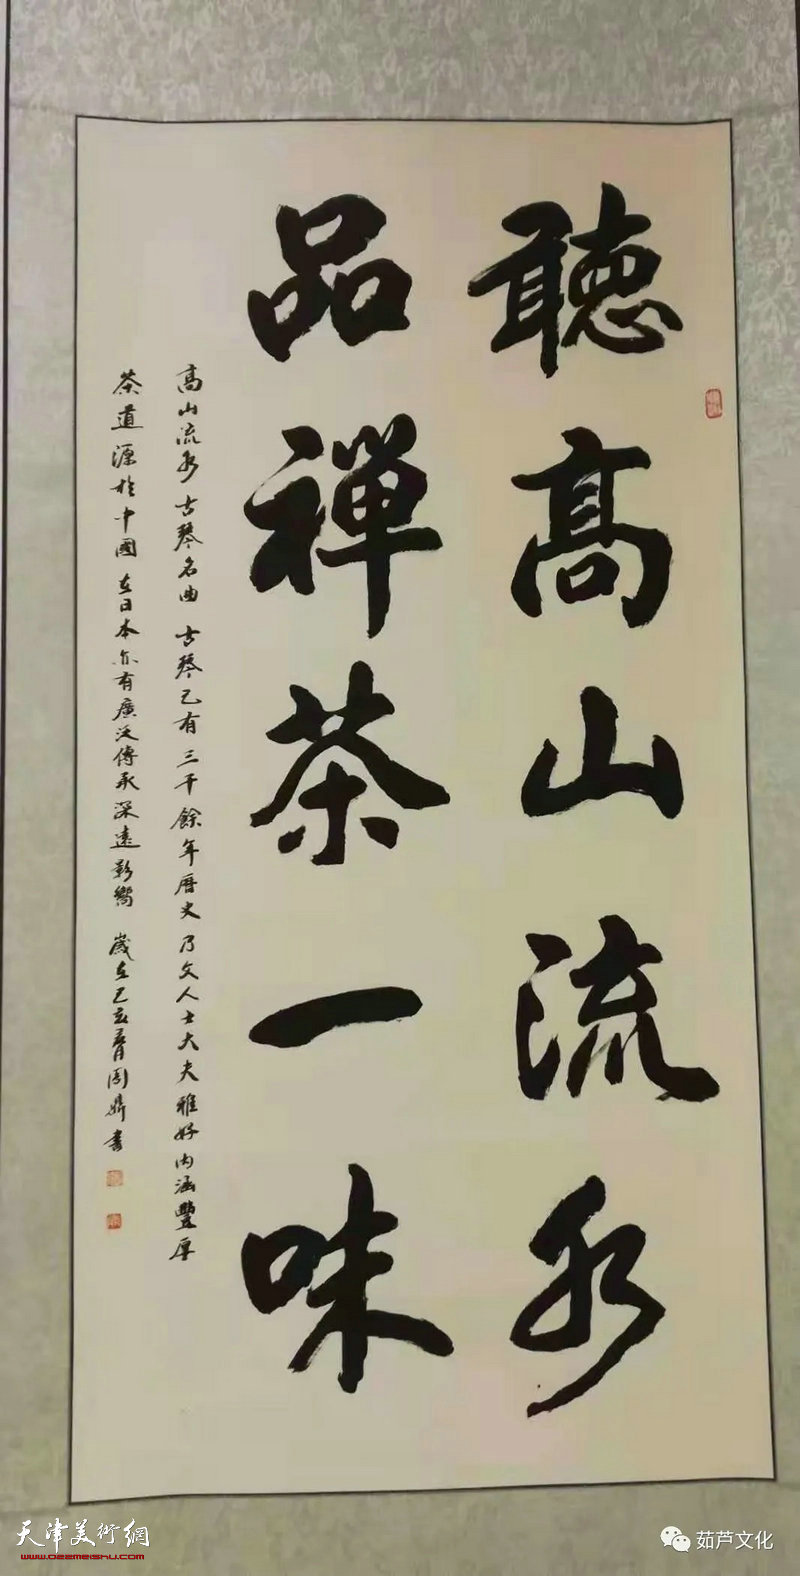 聽高山流水
品禪茶一味
高山流水古琴名曲古琴已有三千餘年曆史乃文人士大夫雅好内涵豐厚
茶道源於中國在日本亦有廣泛傳承深遠影響 歲在己亥 書
天津美術網
www.022meishu.com
茹芦文化